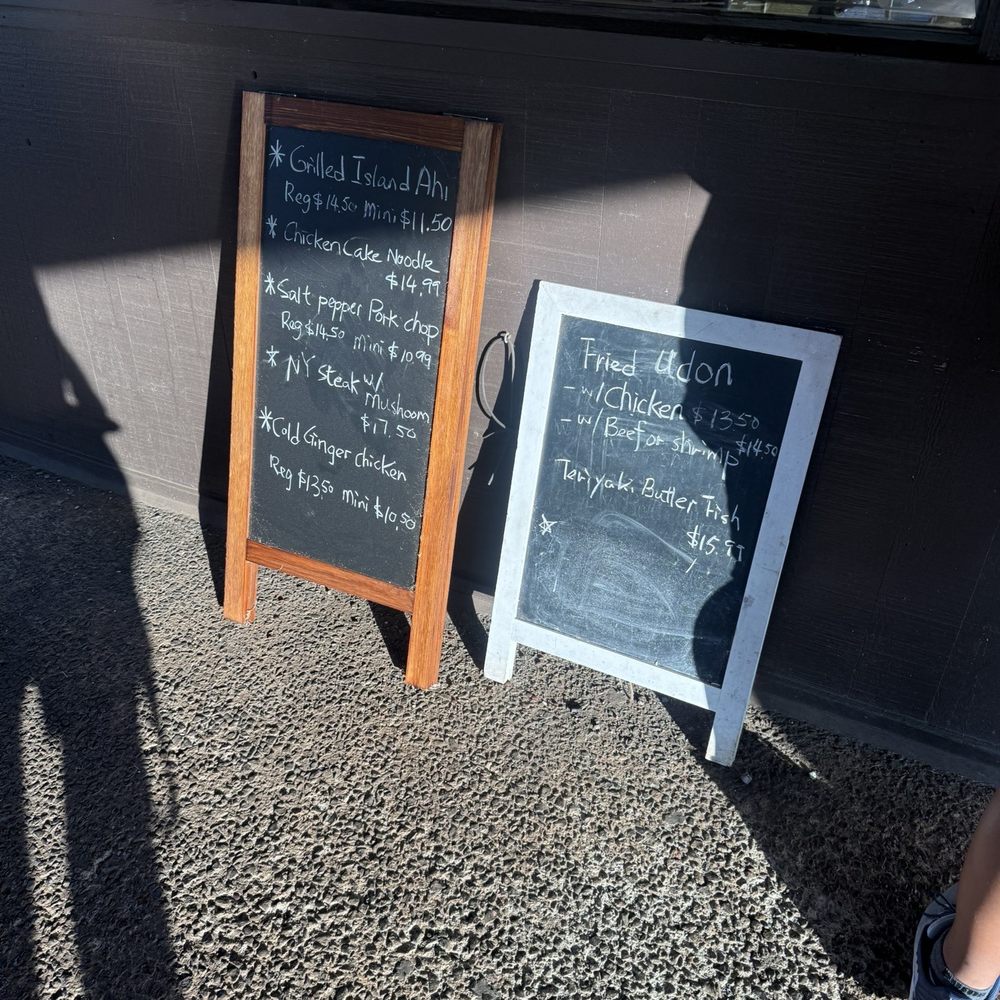 * Grilled Island Ahi
Reg $14.50 Mini $11.50
* Chicken Cake Noodle
$14.99
* Salt pepper Pork chop
Reg $14.50 mini $10.99
* NY Steak w/
mushoom
$17.50
* Cold Ginger chicken
Reg $13.50 mini $10.50
Fried Udon
- w/ Chicken $13.50
- w/ Beef or shrimp $14.50
Teriyaki Butter Fish
$15.99